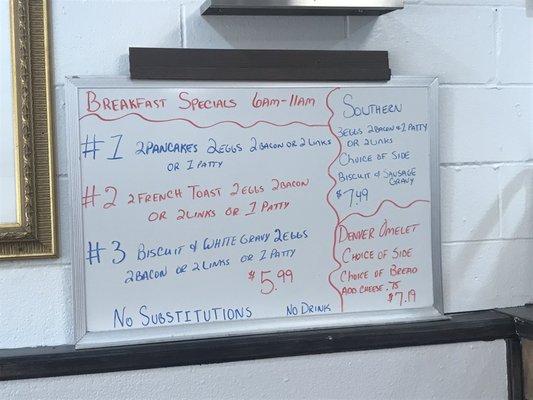 BREAKFAST SPECIALS 6AM-11AM
#1 2PANCAKES 2EGGS 2BACON OR 2LINKS
OR 1 PATTY
#2 2 FRENCH TOAST 2EGGS 2BACON
OR 2LINKS OR 1 PATTY
#3 BISCUIT & WHITE GRAVY 2EGGS
2BACON OR 2 LINKS OR 1 PATTY
$5.99
NO SUBSTITUTIONS NO DRINK
SOUTHERN
3EGGS 2BACON & 1 PATTY
OR 2LINKS
CHOICE OF SIDE
BISCUIT & SAUSAGE
GRAVY
$7.49
DENVER OMELET
CHOICE OF SIDE
CHOICE OF BREAD
ADD CHEESE .75
$7.19